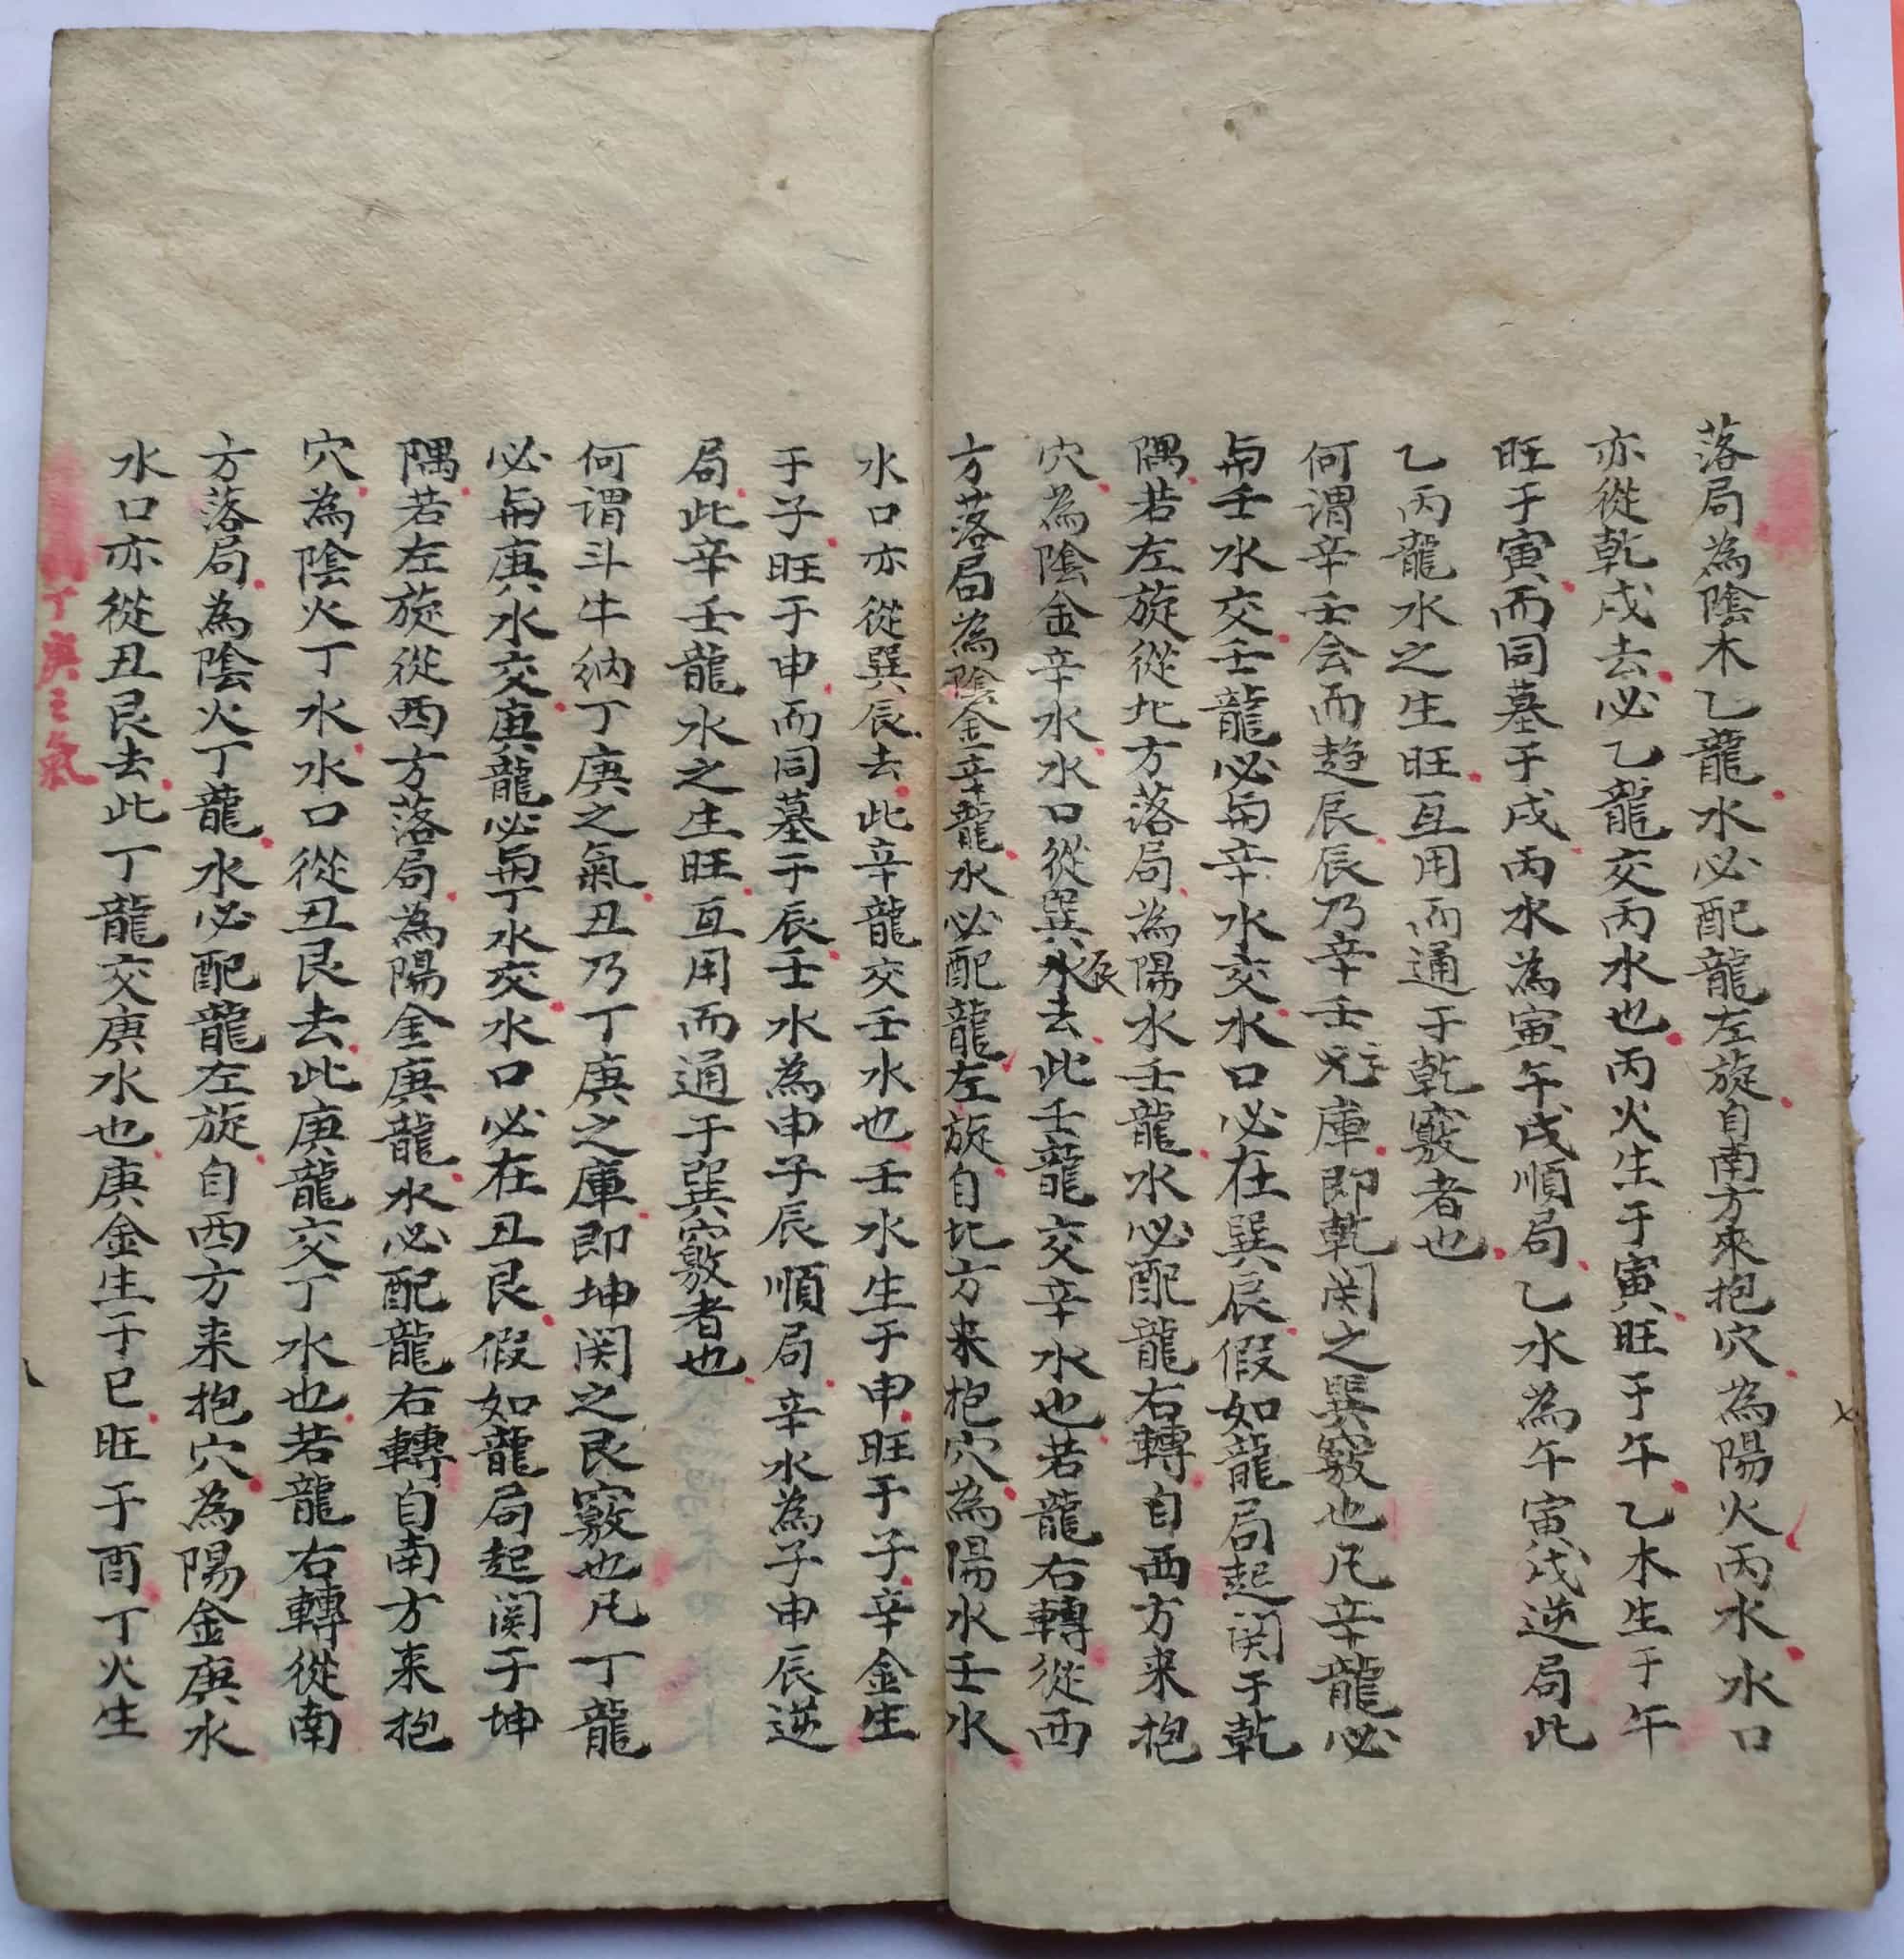 落局為陰木乙龍水必配龍左旋自南方來抱穴為陽火丙水水口
亦從乾戌去必乙龍交丙水也丙火生于寅旺于午乙木生于午
旺于寅而同墓于戌丙水為寅午戌順局乙水為午寅戌逆局此
乙丙龍水之生旺互用而通于乾竅者也
何謂辛壬会而趋辰辰乃辛壬之庫即乾関之巽竅也凡辛龍必
与壬水交壬龍必与辛水交水口必在巽辰假如龍局起関于乾
隅若左旋從北方落局為陽水壬龍水必配龍右轉自西方来抱
穴為陰金辛水水口從巽辰去此壬龍交辛水也若龍右轉從西
方落局為陰金辛龍水必配龍左旋自北方来抱穴為陽水壬水
水口亦從巽辰去此辛龍交壬水也壬水生于申旺于子辛金生
于子旺于申而同墓于辰壬水為申子辰順局辛水為子申辰逆
局此辛壬龍水之生旺互用而通于巽竅者也
何謂斗牛納丁庚之氣丑乃丁庚之庫即坤関之艮竅也凡丁龍
必与庚水交庚龍必与丁水交水口必在丑艮假如龍局起関于坤
隅若左旋從西方落局為陽金庚龍水必配龍右轉自南方来抱
穴為陰火丁水水口從丑艮去此庚龍交丁水也若龍右轉從南
方落局為陰火丁龍水必配龍左旋自西方来抱穴為陽金庚水
水口亦從丑艮去此丁龍交庚水也庚金生于巳旺于酉丁火生
丁庚之氣